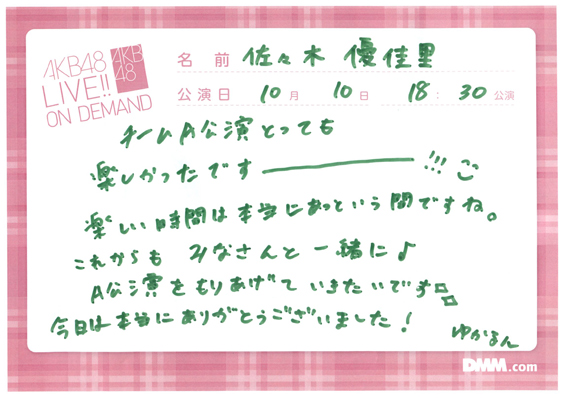 AKB48
LIVE!!
ON DEMAND
AKB
48
名前 佐々木 優佳里
公演日 10月 10日 18:30公演
チームA公演とっても
楽しかったです―――!!!
楽しい時間は本当にあっという間ですね。
これからも みなさんと一緒に♪
A公演をもりあげていきたいです
今日は本当にありがとうございました!
ゆかるん
DMM.com